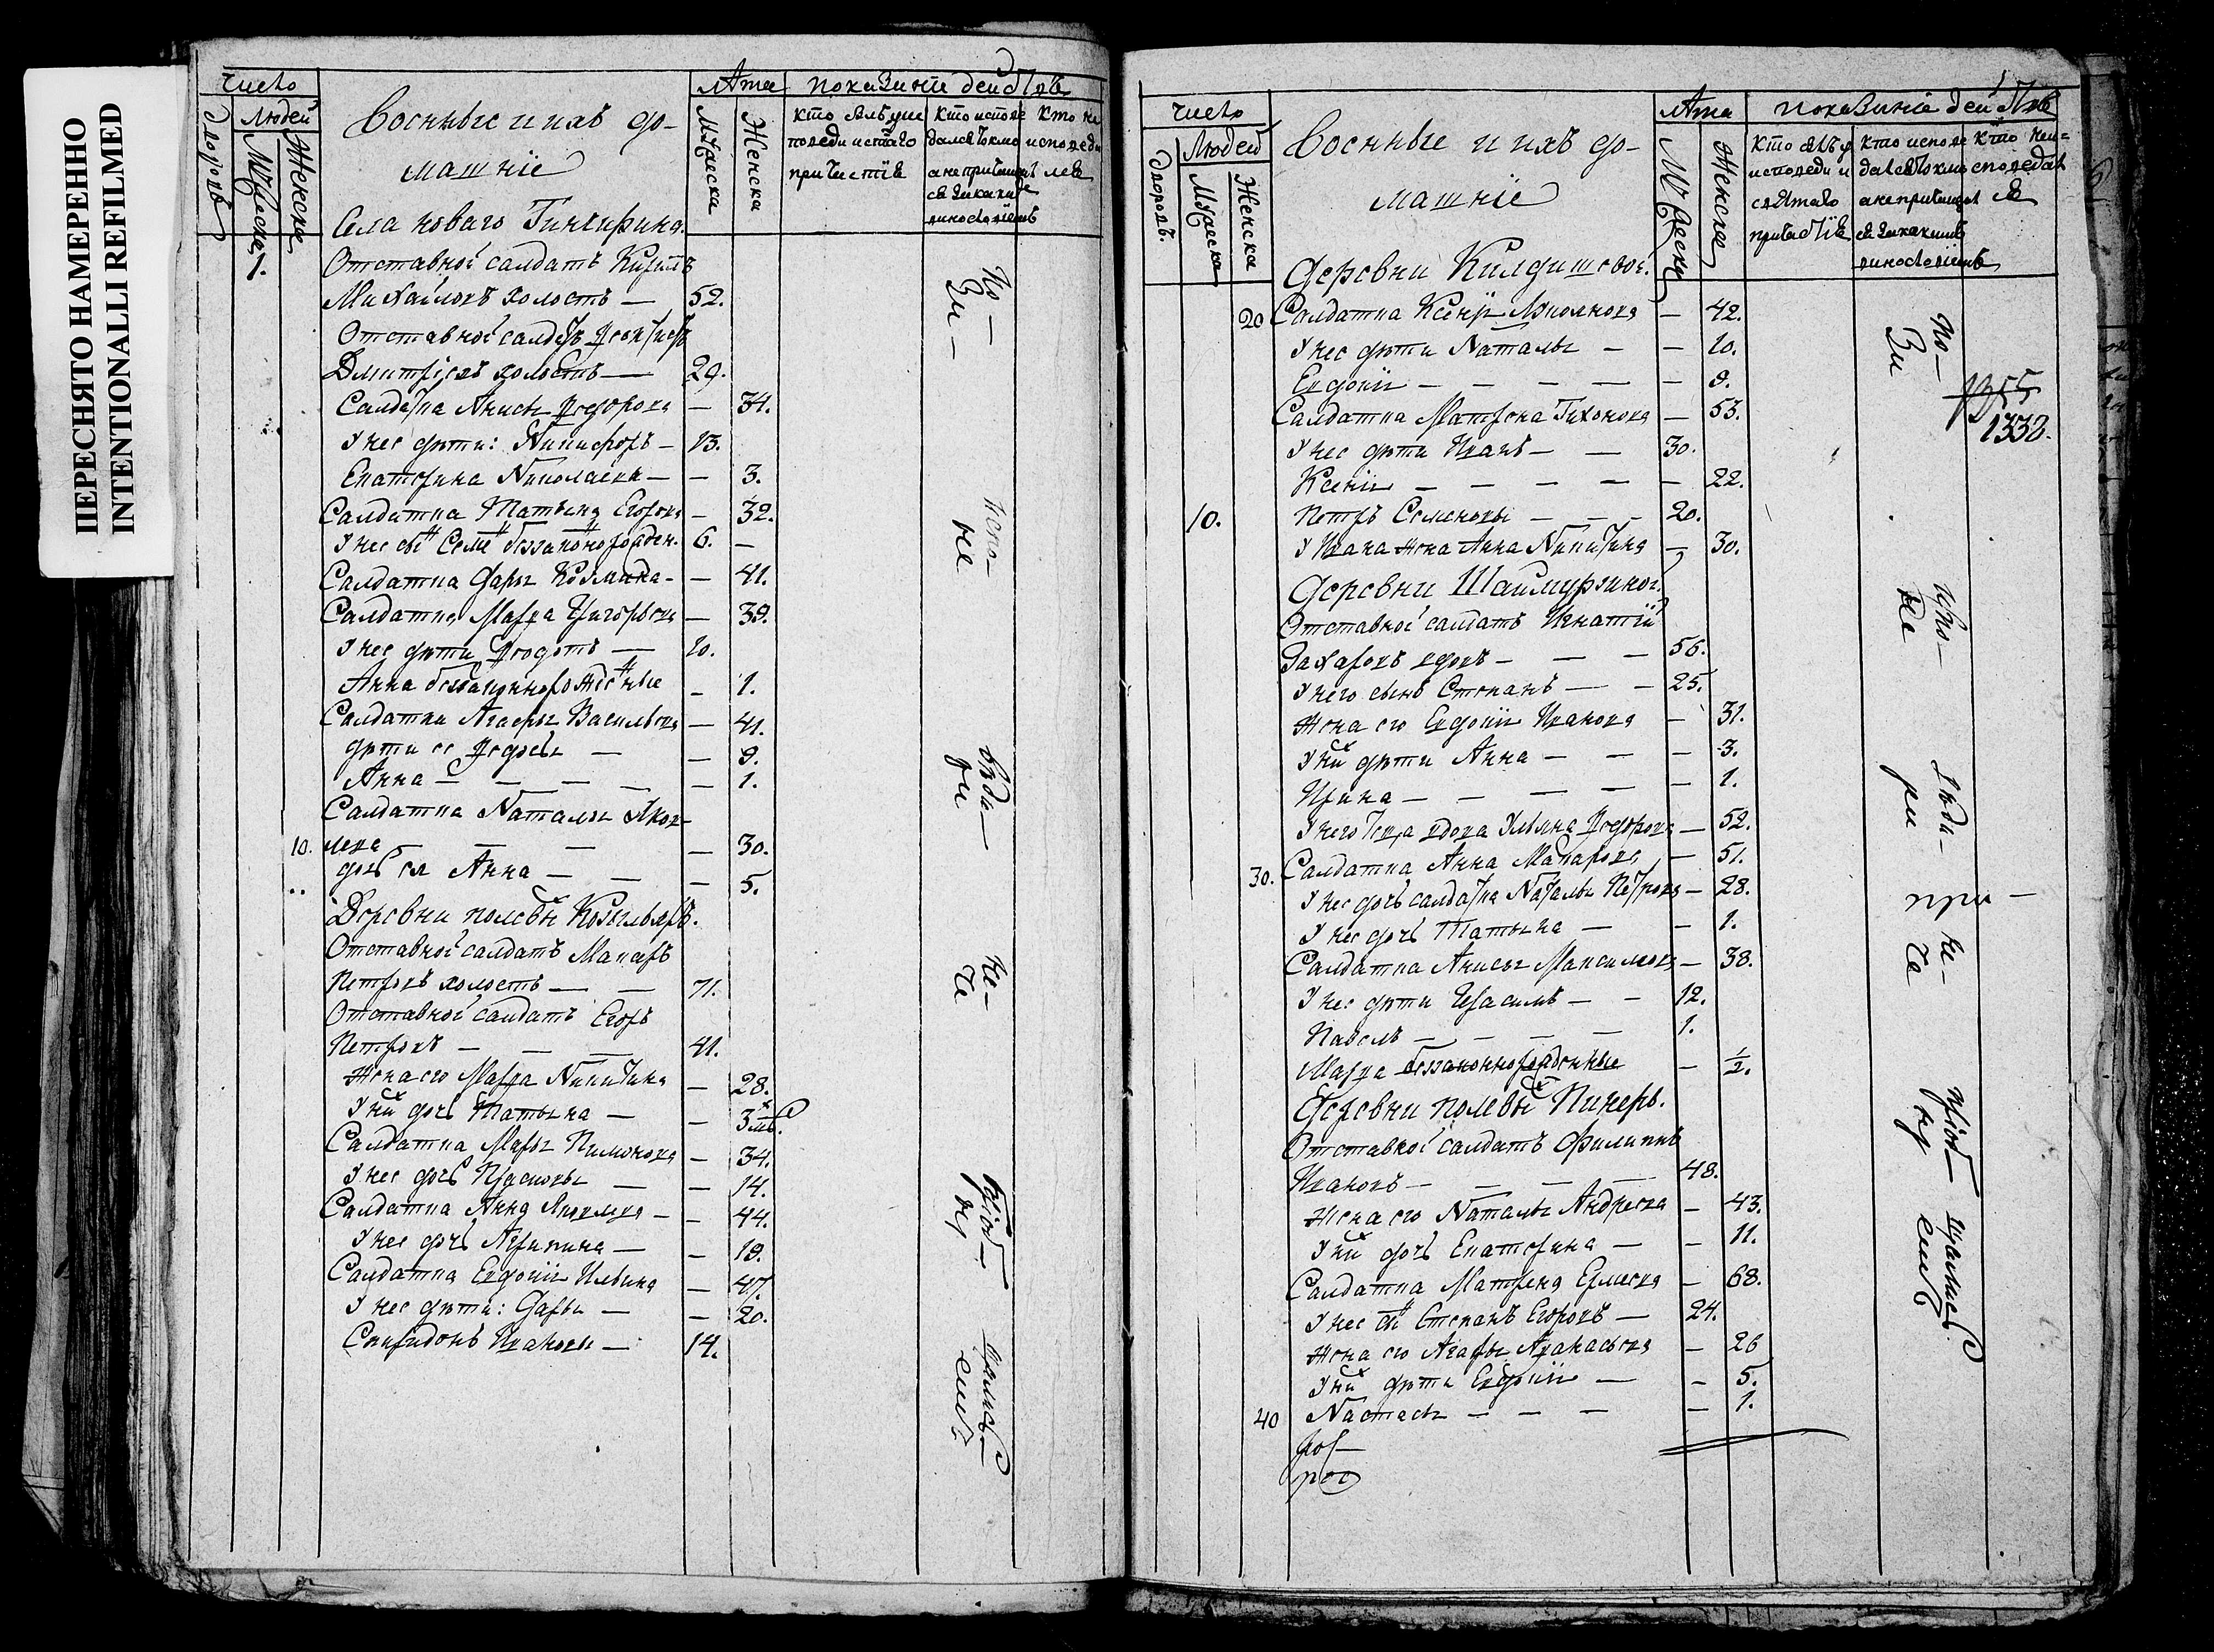 ПЕРЕСНЯТО НАМЕРЕННО
INTENTIONALLI REFILMED
число
Дворовъ
Людей
Мужеска
Женска
Военные и ихъ до-
машнïе
Лѣта
Мужеска
Женска
показанïе дѣйства
кто былъ у ис
поведи и святаго
причастïя
кто испове
дался токмо
а не причащался
кто не
исповеда
лся
Села новаго
1. Отставной салдатъ Кирилъ
Михайловъ холостъ — 52.
Отставной салдатъ
Дмитрïевъ холостъ — 29.
Салдатка Анисья Ѳедорова — 34.
У нее дѣти: Никифоръ — 13.
Екатерина Николаевы — — 3.
Салдатка Татьяна Егорова — 32.
У нее сынъ беззаконорожден. 6. —
Салдатка Дарья Козмина — — 41.
Салдатка Марѳа Григорьева — 39.
У нее дѣти Ѳедотъ — 10.
Анна беззаконнорожденные — 1.
Салдатка Агафья Васильева — 41.
дѣти ее Ѳедосья — — 9.
Анна — — — — 1.
Салдатка Наталья Яков-
10. лева — — — 30.
дочь ея Анна — — — 5.
Деревни полевыхъ Козыльяръ.
Отставной салдатъ Макаръ
Петровъ холостъ — — 71.
Отставной салдатъ Егоръ
Петровъ — — — 41.
Жена его Марѳа Никитина — 28.
У нихъ дочь Татьяна — — 3 мѣс.
Салдатка Марья Пимонова — 34.
У нее дочь Прасковья — — 14.
Салдатка Анна Яковлева — — 44.
У нее дочь Агрипина — — 19.
Салдатка Евдокïя Ильина — 47.
У нее дѣти: Дарья — — 20.
Спиридонъ Ивановы — 14.
По-
испо-
вѣди-
не-
прïоб-
щались
за-
не
ри
че
нï
емъ
число
Дворовъ.
Людей
Мужеска
Женска
Военные и ихъ до-
машнïе
Лѣта
Мужеска
Женска
показанïе дѣйства
кто былъ у
исповеди и
святаго
причастïя
кто испове
дался токмо
а не причащался
кто неи=
споведал
ся
Деревни Килдишевой.
20 Салдатка Ксенья — 42.
У нее дѣти Наталья — — 10.
Евдокïя — — — — — 9.
Салдатка Матрена Тихонова — 53.
У нее дѣти Иванъ — — 30.
Ксенïя — — — — — 22.
10. Петръ Семеновы — — — 20.
У Ивана жена Анна Никитина — 30.
Деревни Шаймурзиной.
Отставной салдатъ Игнатïй
Захаровъ вдовъ — — — 56.
У него сынъ Степанъ — — 25.
Жена его Евдокïя Иванова — 31.
У нихъ дѣти Анна — — — 3.
Ирина — — — — — 1.
У него теща вдова Ульяна Ѳедорова — 52.
30. Салдатка Анна Макарова — 51.
У нее дочь салдатка Наталья Петрова — 28.
У нее дочь Татьяна — — 1.
Салдатка Анисья Максимова — 38.
У нее дѣти Герасимъ — — 12.
Павелъ — — — — 1.
Марѳа беззаконнорожденные — ½.
Деревни полевыхъ Пинеръ.
Отставной салдатъ Филиппъ
Ивановъ — — — — 48.
Жена его Наталья Андреева — 43.
У нихъ дочь Екатерина — — 11.
Салдатка Матрена Ермеева — 68.
У нее сынъ Степанъ Егоровъ — 24.
Жена его Агафья Аѳанасьева — 26
У нихъ дѣти Евдокïя — — 5.
40 Настасья — — — — 1.
По-
испо-
вѣди-
не-
прïоб-
щались
за
не
ри
че
нï
емъ
1338.